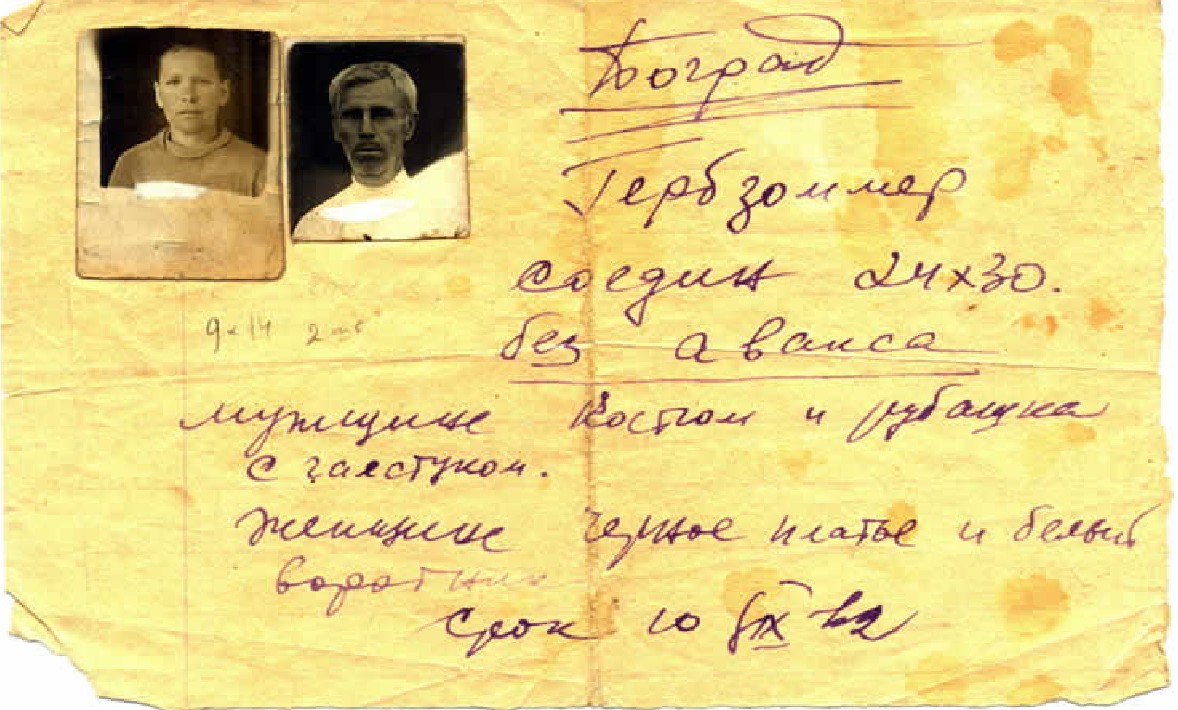 Гербзоммер
соедин 24х30.
9х14 2 шт
без аванса
мужщине Костюм и рубашка
с галстуком.
Женщине Черное платье и белый
воротник
Срок 10 IX